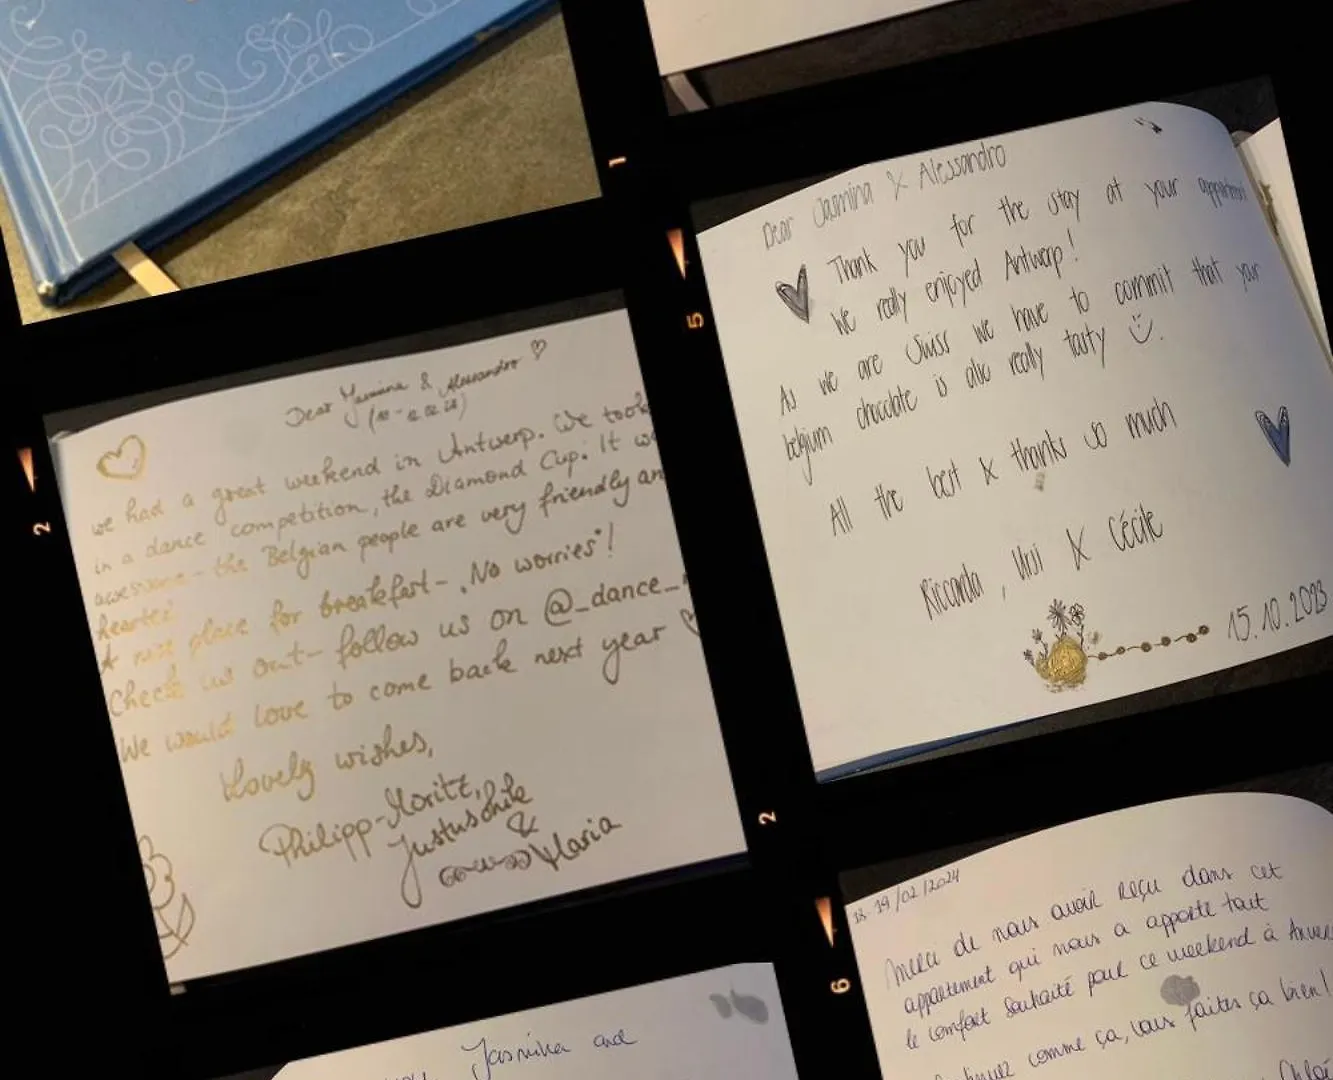 1
2
Dear Jasmina & Alessandro
we had a great weekend in Antwerp. We took
in a dance competition, the Diamond Cup. It
awesome - the Belgian people are very friendly
hearted
A nice place for breakfast - "No worries"!
Check us out - follow us on @_dance_
We would love to come back next year
Lovely wishes,
Philipp-Moritz,
&
Maria
5
Dear Jasmina & Alessandro
Thank you for the stay at your
We really enjoyed Antwerp!
As we are Swiss we have to commit that your
belgium chocolate is also really tasty
All the best & thanks so much
Riccarda, & Cécile
15.10.2023
2
Jasmina and
6
18-19/02/2024
Merci de nous avoir reçu dans cet
appartement qui nous a apporté tout
le confort souhaité pour ce weekend à
comme ça, vous faites ça bien!
Chloé